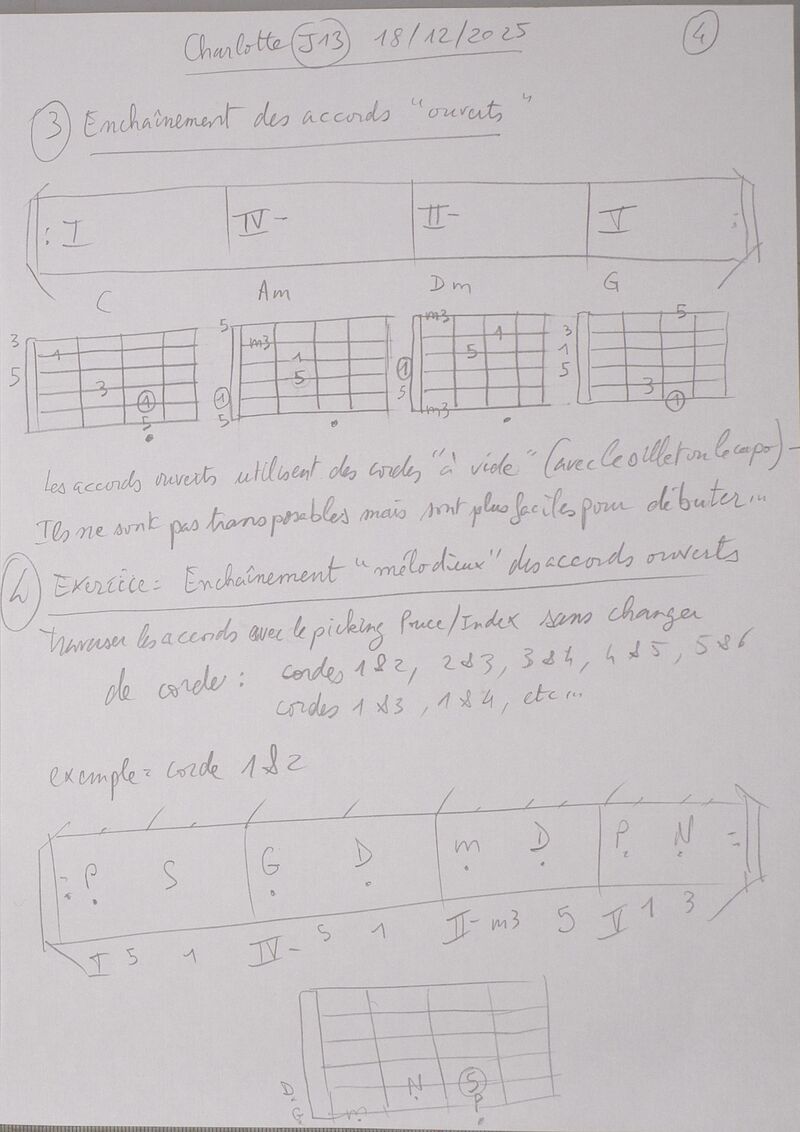 Charlotte J13 18/12/2025 4
3 Enchaînement des accords "ouverts"
: I IV- II- V :
C Am Dm G
3 5 1 3 1 5
5 1 5 m3 1 5
1 5 m3 1 5 m3
3 1 5 5 3 1
Les accords ouverts utilisent des cordes "à vide" (avec le sillet ou le capo) -
Ils ne sont pas transposables mais sont plus faciles pour débuter...
4 Exercice = Enchaînement "mélodieux" des accords ouverts
Traverser les accords avec le picking Pouce/Index sans changer
de corde : cordes 1&2, 2&3, 3&4, 4&5, 5&6
cordes 1&3, 1&4, etc...
exemple = corde 1&2
: P S G D m D P N :
I 5 1 IV- 5 1 II- m3 5 V 1 3
D N S
G m P